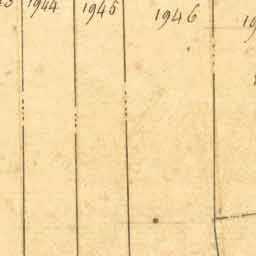 1944 1945 1946